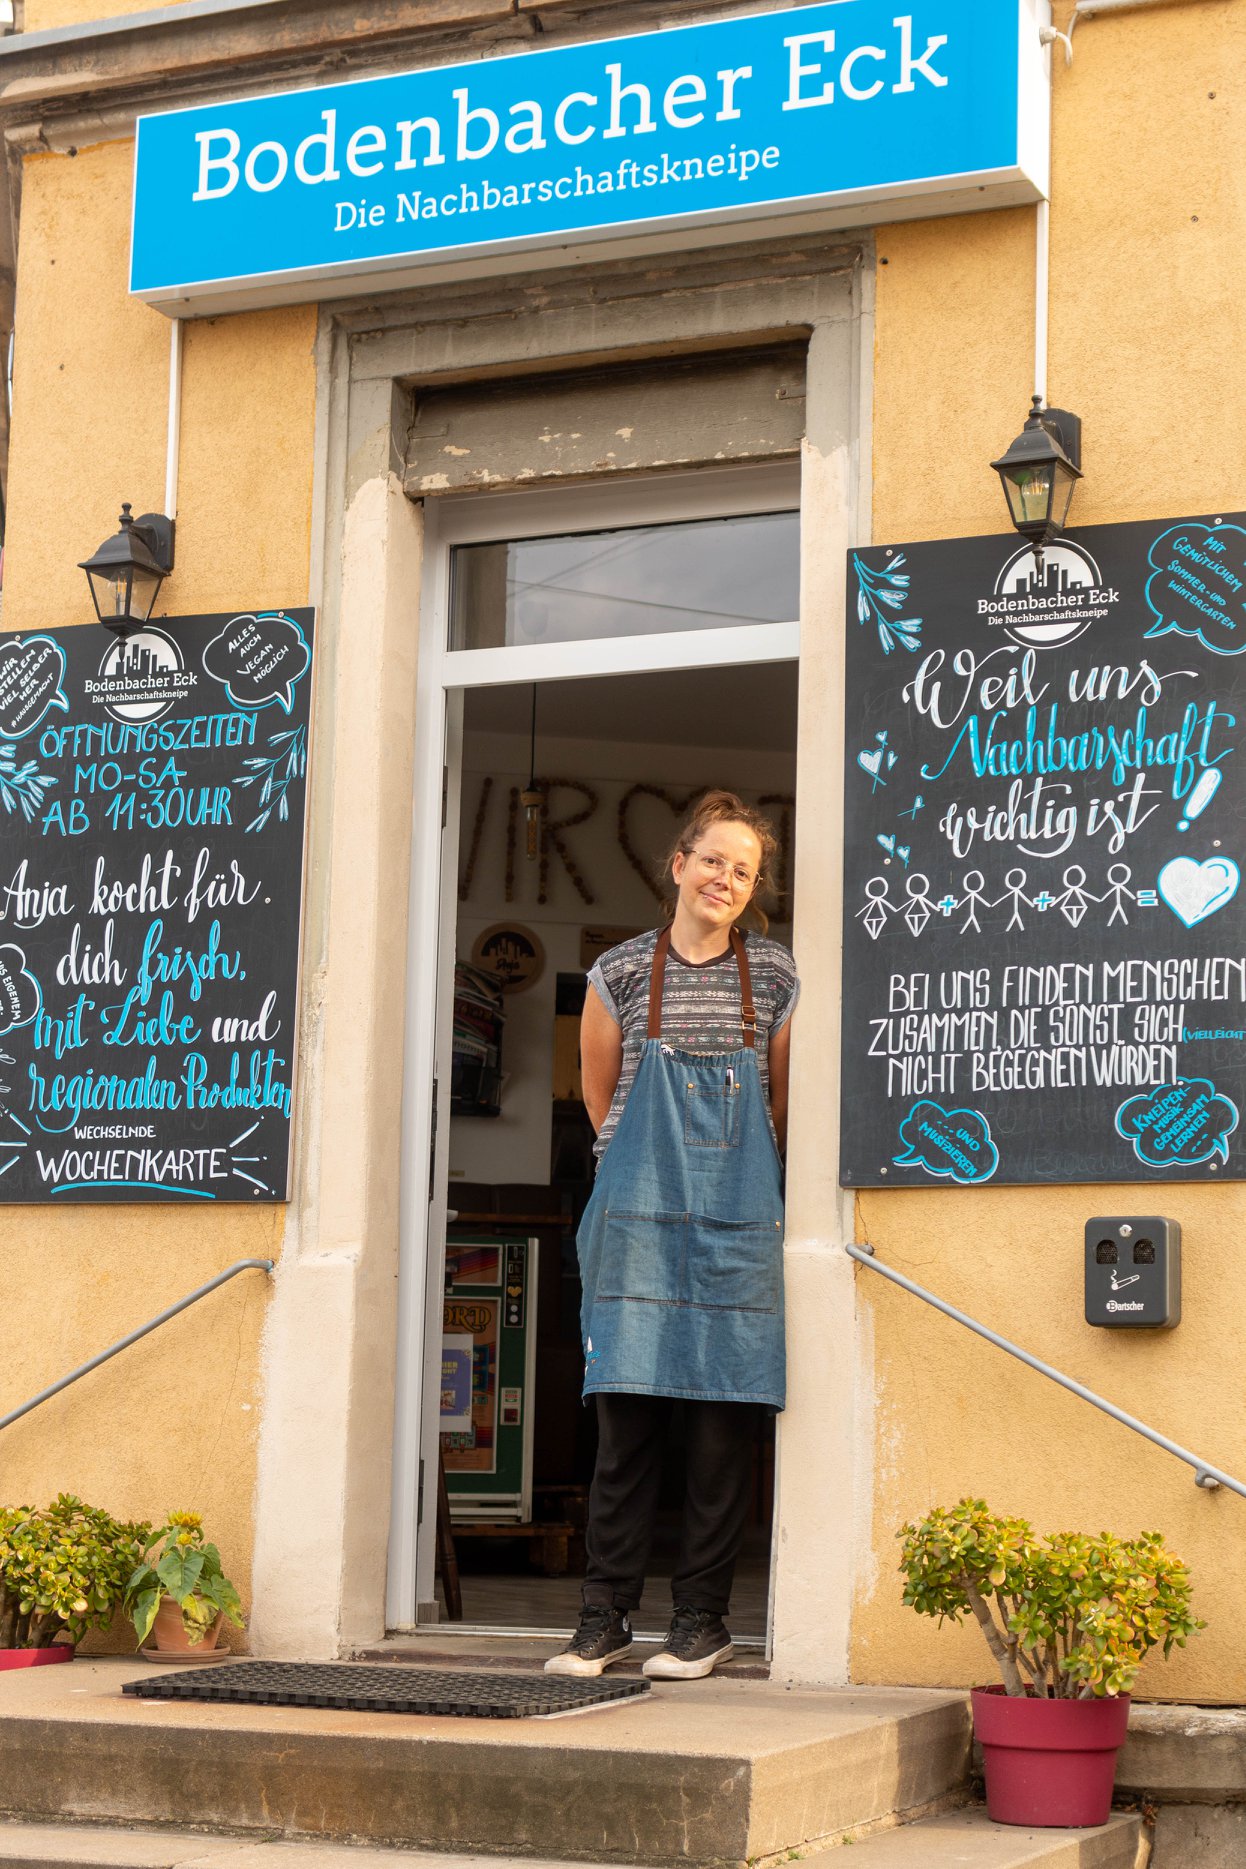 Bodenbacher Eck
Die Nachbarschaftskneipe
WIR
STELLEN
VIEL SELBER
HER
#HAUSGEMACHT
Bodenbacher Eck
Die Nachbarschaftskneipe
ALLES
AUCH
VEGAN
MÖGLICH
ÖFFNUNGSZEITEN
MO-SA
AB 11:30UHR
Anja kocht für
dich frisch,
mit Liebe und
regionalen Produkten
EIGENEM
WECHSELNDE
WOCHENKARTE
WIR
Anja
ORD
Bodenbacher Eck
Die Nachbarschaftskneipe
MIT
GEMÜTLICHEM
SOMMER-UND
WINTERGARTEN
Weil uns
Nachbarschaft
wichtig ist!
+ + =
BEI UNS FINDEN MENSCHEN
ZUSAMMEN, DIE SONST SICH (VIELLEICHT
NICHT BEGEGNEN WÜRDEN.
...UND
MUSIZIEREN
KNEIPEN-
MUSIK
GEMEINSAM
LERNEN
Bartscher